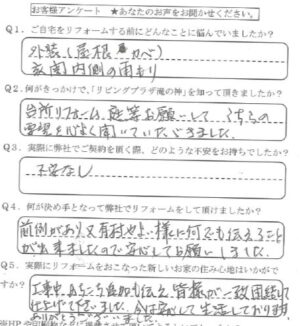 お客様アンケート ★あなたのお声をお聞かせください。
Q1. ご自宅をリフォームする前にどんなことに悩んでいましたか?
外装(屋根 カベ)
玄関内側の雨もり
Q2. 何がきっかけで、「リビングプラザ滝の神」を知って頂きましたか?
台所リフォーム、庭等お願いして うちらの
要望を心よく聞いていただきました。
Q3. 実際に弊社でご契約を頂く際、どのような不安をお持ちでしたか?
不安なし
Q4. 何が決め手となって弊社でリフォームをして頂けましたか?
前例があり、又有村やよい様に何でも伝えること
が出来ましたので安心してお願いしました。
Q5. 実際にリフォームをおこなった新しいお家の住み心地はいかがで
すか?
工事中、あちこち良加も伝え、皆様が一致団結して
仕上げて下さいました。今は安心して生活しております
ありがとうございました。